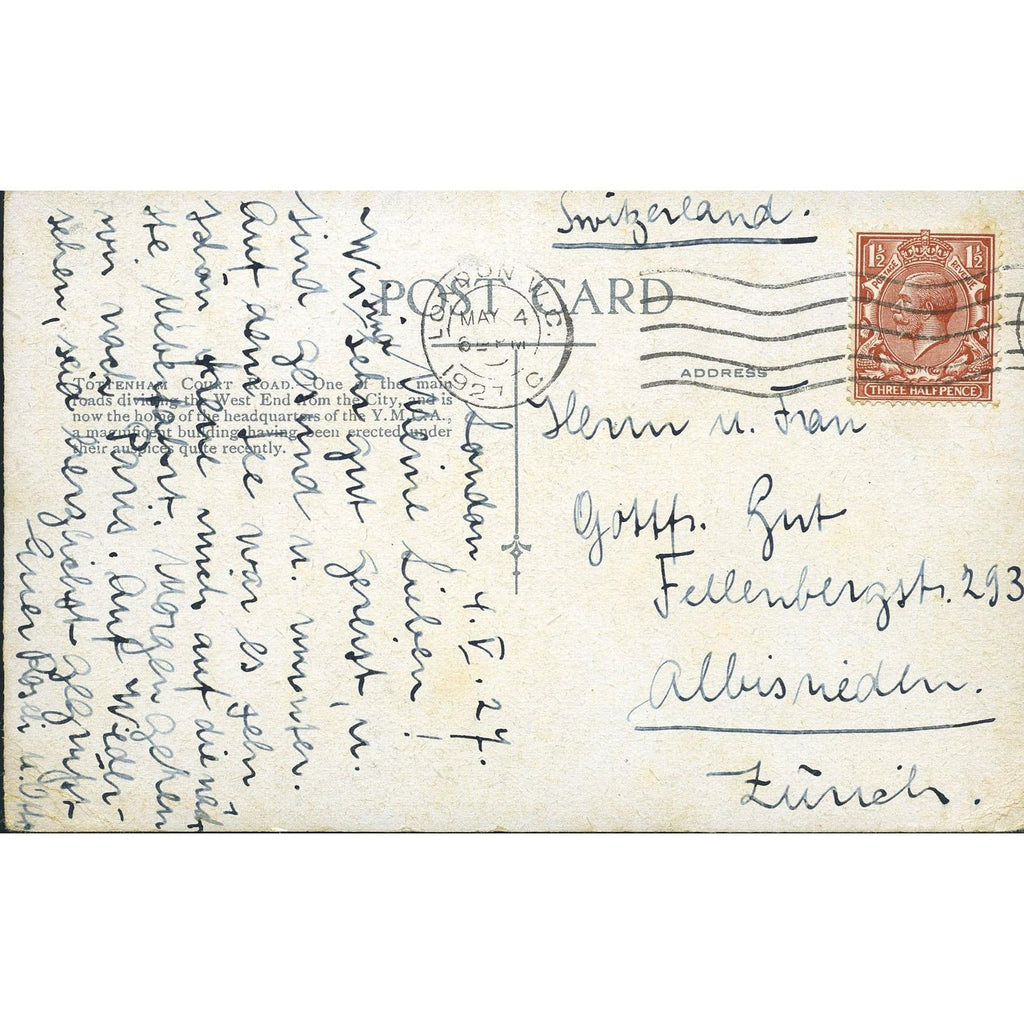 Switzerland.
POST CARD
LONDON W.C.
MAY 4
1927
C
POSTAGE REVENUE
1½ 1½
THREE HALFPENCE
ADDRESS
TOTTENHAM COURT ROAD.—One of the main
roads dividing the West End from the City, and is
now the home of the headquarters of the Y.M.C.A.,
a magnificent building having been erected under
their auspices quite recently.
Herrn u. Frau
Gottfr. Gut
Fellenbergstr. 293
Albisrieden.
Zürich.
London 4.V.27.
Meine Lieben!
Wir sind sehr gut gereist, u.
sind gesund u. munter.
Auf dem See war es sehr
schön, freue mich auf die näch-
ste Ueberfahrt. Morgen gehen
wir nach Paris. Auf Wieder-
sehen, seid herzlichst gegrüsst
Euer Rösli u.